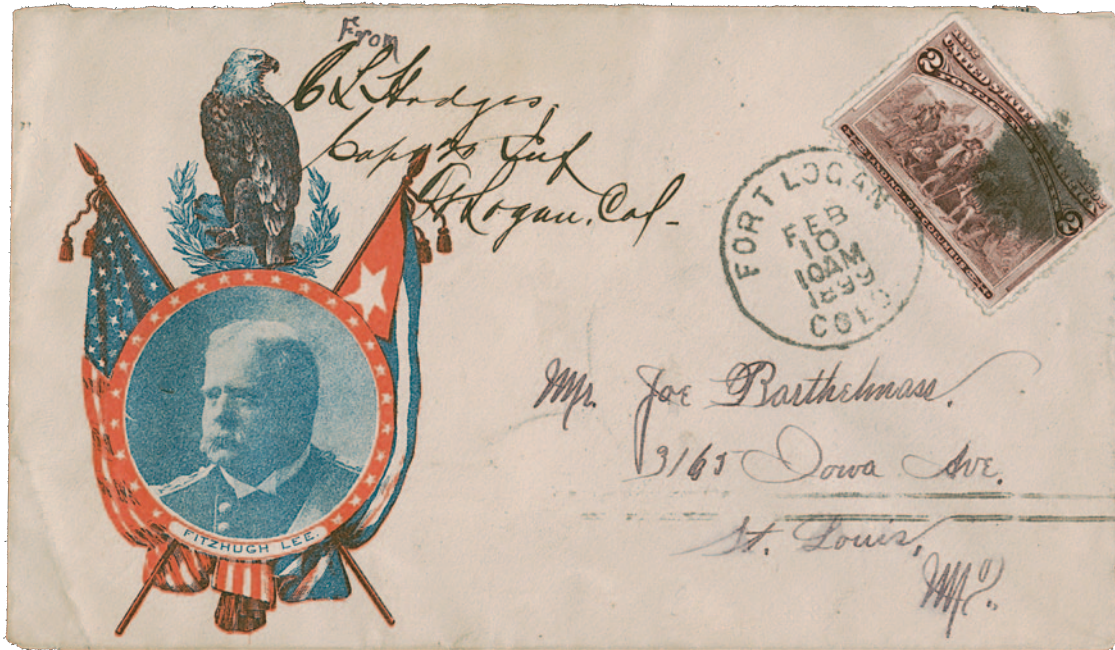 From
C L Hodges,
Capt Inf
Ft Logan, Col-
1492
UNITED STATES
POSTAGE
2
2
LANDING OF COLUMBUS
FORT LOGAN
FEB
10
10AM
1899
COLO.
Mr. Joe Barthelmass.
3165 Iowa Ave.
St. Louis,
Mo.
FITZHUGH LEE.